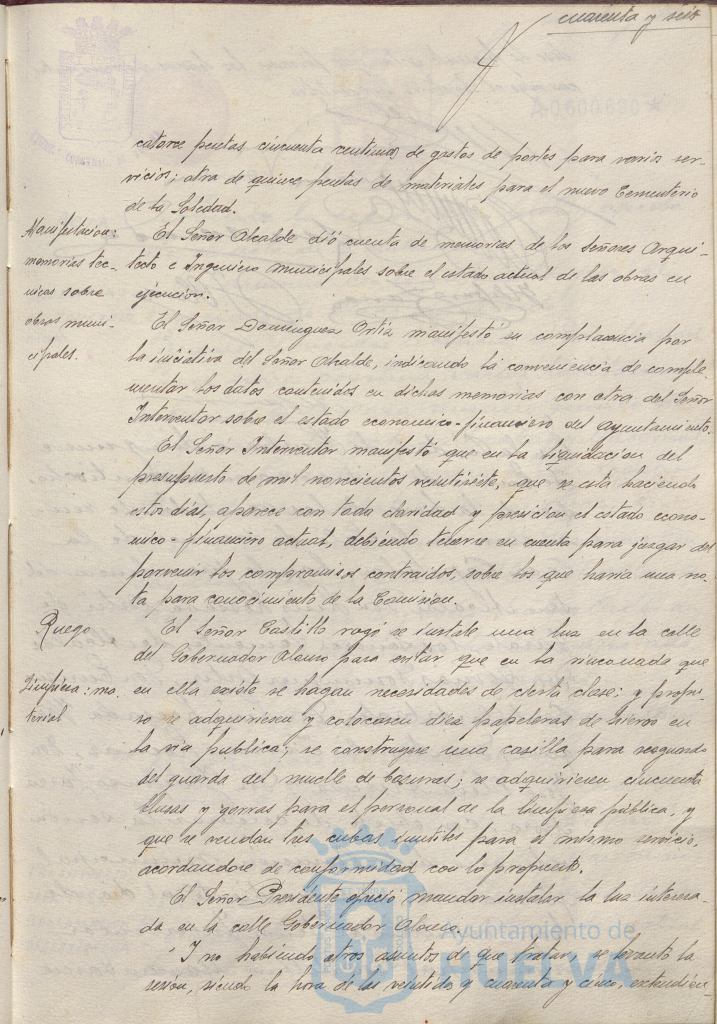 cuarenta y seis
catorce pesetas cincuenta centimos de gastos de portes para varios ser-
vicios; otra de quince pesetas de materiales para el nuevo Cementerio
de la Soledad.
Manifestacion:
memorias tec-
nicas sobre
obras muni-
cipales.
El Señor Alcalde dió cuenta de memorias de los señores Arqui-
tecto e Ingeniero municipales sobre el estado actual de las obras en
ejecucion.
El Señor Dominguez Ortiz manifestó su complacencia por
la iniciativa del Señor Alcalde, indicando la conveniencia de comple-
mentar los datos contenidos en dichas memorias con otra del Señor
Interventor sobre el estado economico-financiero del Ayuntamiento.
El Señor Interventor manifestó que en la liquidacion del
presupuesto de mil novecientos veintisiete, que se esta haciendo
estos dias, aparece con toda claridad y precision el estado econo-
mico-financiero actual, debiendo tenerse en cuenta para juzgar del
porvenir los compromisos contraidos, sobre los que haria una no-
ta para conocimiento de la Comision.
Ruego
El Señor Castillo rogó se instale una luz en la calle
del Gobernador Alonso para evitar que en la rinconada que
Limpieza: ma-
terial
en ella existe se hagan necesidades de cierta clase: y propu-
so se adquiriesen y colocasen diez papeleras de hierro en
la via publica; se construyese una casilla para resguardo
del guarda del muelle de basuras; se adquiriesen cincuenta
blusas y gorras para el personal de la limpieza pública, y
que se vendan tres cubas inutiles para el mismo servicio,
acordandose de conformidad con lo propuesto.
El Señor Presidente ofreció mandar instalar la luz interesa-
da en la calle Gobernador Alonso.
Y no habiendo otros asuntos de que tratar, se levantó la
sesión, siendo la hora de las veintidos y cuarenta y cinco, extendien-
Ayuntamiento de
HUELVA